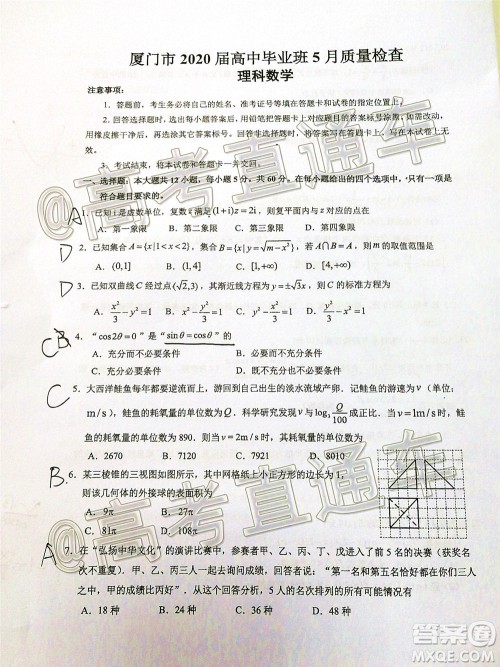 厦门市 2020 届高中毕业班 5 月质量检查
理科数学
注意事项：
1. 答题前，考生务必将自己的姓名、准考证号等填写在答题卡和试卷的指定位置上．
2. 回答选择题时，选出每小题答案后，用铅笔把答题卡上对应题目的答案标号涂黑．如需改动，
用橡皮擦干净后，再选涂其它答案标号．回答非选择题时，将答案写在答题卡上，写在本试卷上无效．
3. 考试结束，将本试卷和答题卡一并交回．
一、选择题：本大题共 12 小题，每小题 5 分，共 60 分．在每小题给出的四个选项中，只有一项是
符合题目要求的．
A 1. 已知 i 是虚数单位，复数 z 满足(1+i)z=2i，则复平面内与 z 对应的点在
A. 第一象限 B. 第二象限 C. 第三象限 D. 第四象限
D 2. 已知集合 A={x|1<x<2}，集合 B={x|y=√(m−x²)}，若 A∩B=A，则 m 的取值范围是
A. (0,1] B. (1,4] C. [1,+∞) D. [4,+∞)
D 3. 已知双曲线 C 经过点(√2,3)，其渐近线方程为 y=±√3x，则 C 的标准方程为
4. “cos2θ=0”是“sinθ=cosθ”的
A. 充分而不必要条件 B. 必要而不充分条件
C. 充分必要条件 D. 既不充分也不必要条件
C 5. 大西洋鲑鱼每年都要逆流而上，游回到自己出生的淡水流域产卵．记鲑鱼的游速为 v（单位：
m/s），鲑鱼的耗氧量的单位数为 Q．科学研究发现 v 与 log₃ Q/100 成正比．当 v=1m/s 时，鲑
鱼的耗氧量的单位数为 900．当 v=2m/s 时，其耗氧量的单位数为
A. 2670 B. 7120 C. 7921 D. 8010
B 6. 某三棱锥的三视图如图所示，其中网格纸上小正方形的边长为 1，
则该几何体的外接球的表面积为
A. 9π B. 27π C. 81π D. 108π
A 7. 在“弘扬中华文化”的演讲比赛中，参赛者甲、乙、丙、丁、戊进入了前 5 名的决赛（获奖名
次不重复）．甲、乙、丙三人一起去询问成绩，回答者说：“第一名和第五名恰好都在你们三人
之中，甲的成绩比丙好”，从这个回答分析，5 人的名次排列的所有可能情况有
A. 18 种 B. 24 种 C. 36 种 D. 48 种
@高考直通车
@高考直通车
答案圈
MXQE.COM